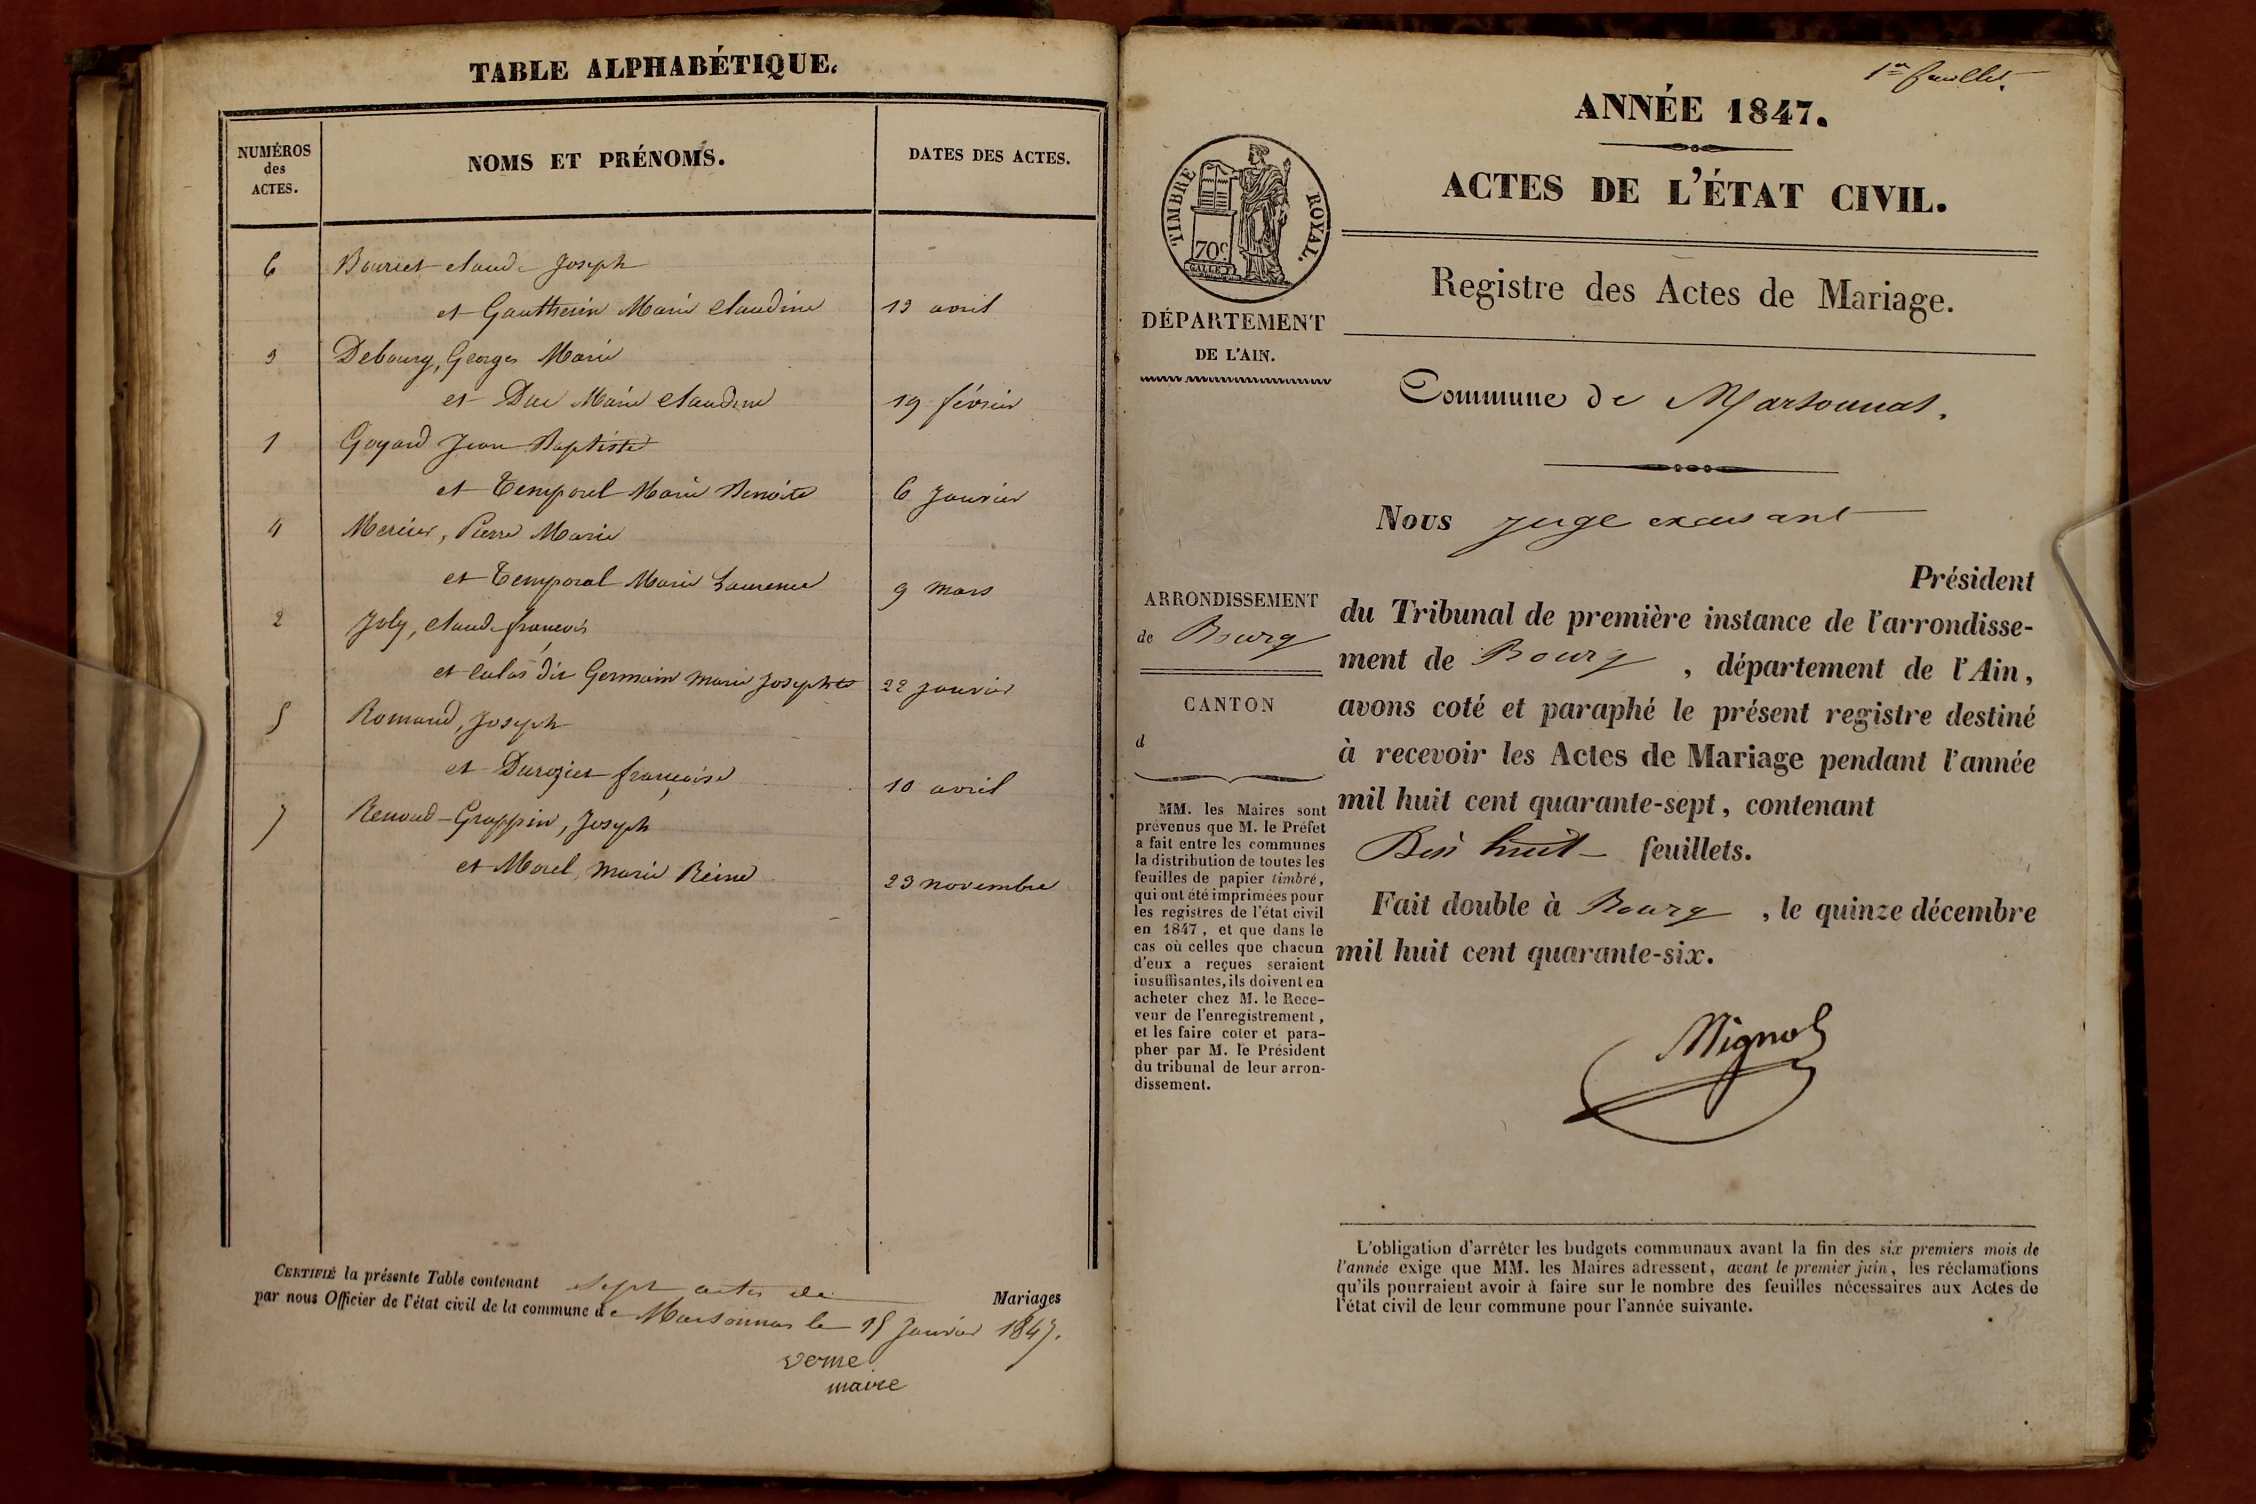 TABLE ALPHABÉTIQUE.
NUMÉROS
des
ACTES.
NOMS ET PRÉNOMS.
DATES DES ACTES.
6 Bouriet claude Joseph
et Gautherin Marie claudine 13 avril
3 Debourg, Georges Marie
et Duc Marie claudine 19 février
1 Goyard Jean Baptiste
et Temporal Marie Benoite 6 Janvier
4 Mercier, Pierre Marie
et Temporal Marie Laurence 9 mars
2 Joly, claude françois
et calas dit Germain marie Josephte 22 janvier
5 Romand, Joseph
et Durozier françoise 10 avril
7 Renoud-Grappin, Joseph
et Morel, marie Reine 23 novembre
CERTIFIÉ la présente Table contenant sept actes de Mariages
par nous Officier de l'état civil de la commune de Marsonnas le 15 Janvier 1847.
verne
maire
1er feuillet.
ANNÉE 1847.
ACTES DE L'ÉTAT CIVIL.
TIMBRE ROYAL.
70c
DÉPARTEMENT
DE L'AIN.
Registre des Actes de Mariage.
Commune de Marsonnas.
Nous juge
Président
du Tribunal de première instance de l'arrondisse-
ment de Bourg, département de l'Ain,
avons coté et paraphé le présent registre destiné
à recevoir les Actes de Mariage pendant l'année
mil huit cent quarante-sept, contenant
huit feuillets.
Fait double à Bourg, le quinze décembre
mil huit cent quarante-six.
Mignot
ARRONDISSEMENT
de Bourg
CANTON
d
MM. les Maires sont
prévenus que M. le Préfet
a fait entre les communes
la distribution de toutes les
feuilles de papier timbré,
qui ont été imprimées pour
les registres de l'état civil
en 1847, et que dans le
cas où celles que chacun
d'eux a reçues seraient
insuffisantes, ils doivent en
acheter chez M. le Rece-
veur de l'enregistrement,
et les faire coter et para-
pher par M. le Président
du tribunal de leur arron-
dissement.
L'obligation d'arrêter les budgets communaux avant la fin des six premiers mois de
l'année exige que MM. les Maires adressent, avant le premier juin, les réclamations
qu'ils pourraient avoir à faire sur le nombre des feuilles nécessaires aux Actes de
l'état civil de leur commune pour l'année suivante.